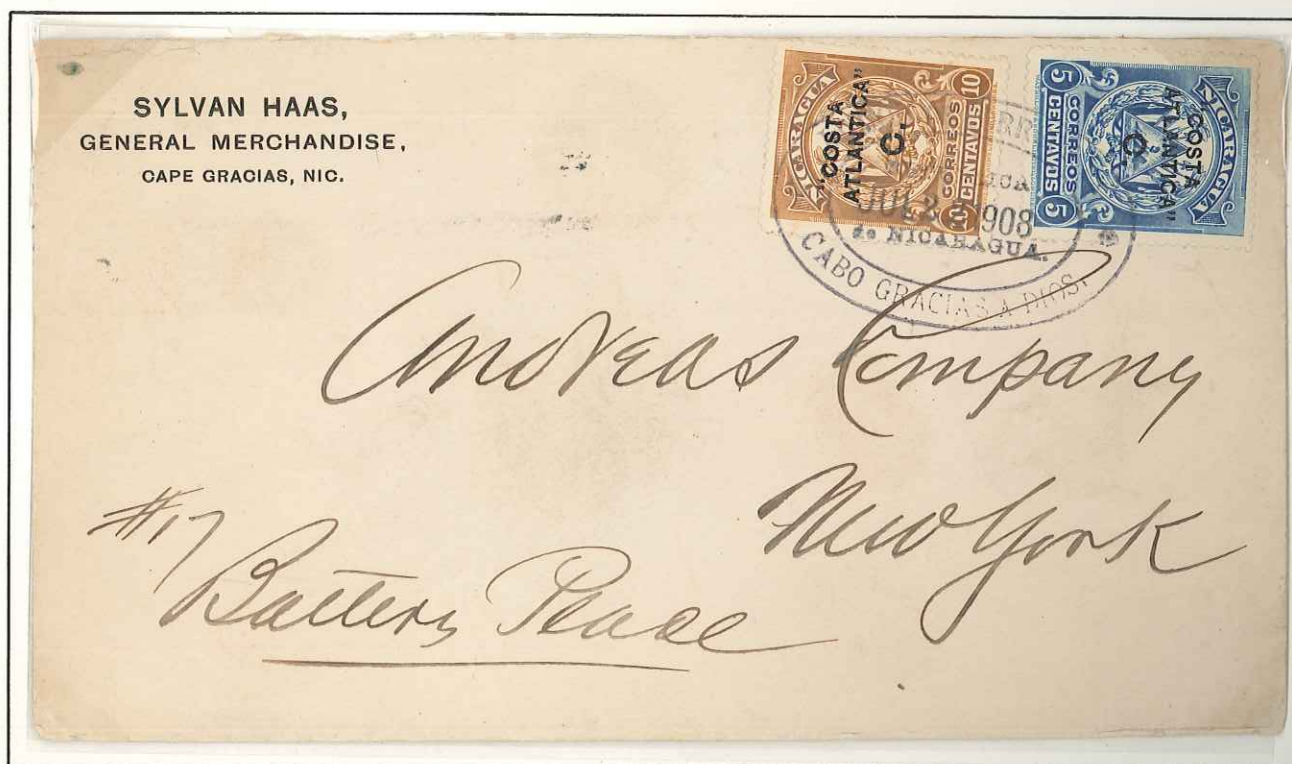 SYLVAN HAAS,
GENERAL MERCHANDISE,
CAPE GRACIAS, NIC.
NICARAGUA
"COSTA
ATLANTICA"
C.
CORREOS
10 CENTAVOS 10
NICARAGUA
"COSTA
ATLANTICA"
C.
CORREOS
5 CENTAVOS 5
1908
de NICARAGUA.
CABO GRACIAS A DIOS.
Andreas Company
New York
#17
Battery Place